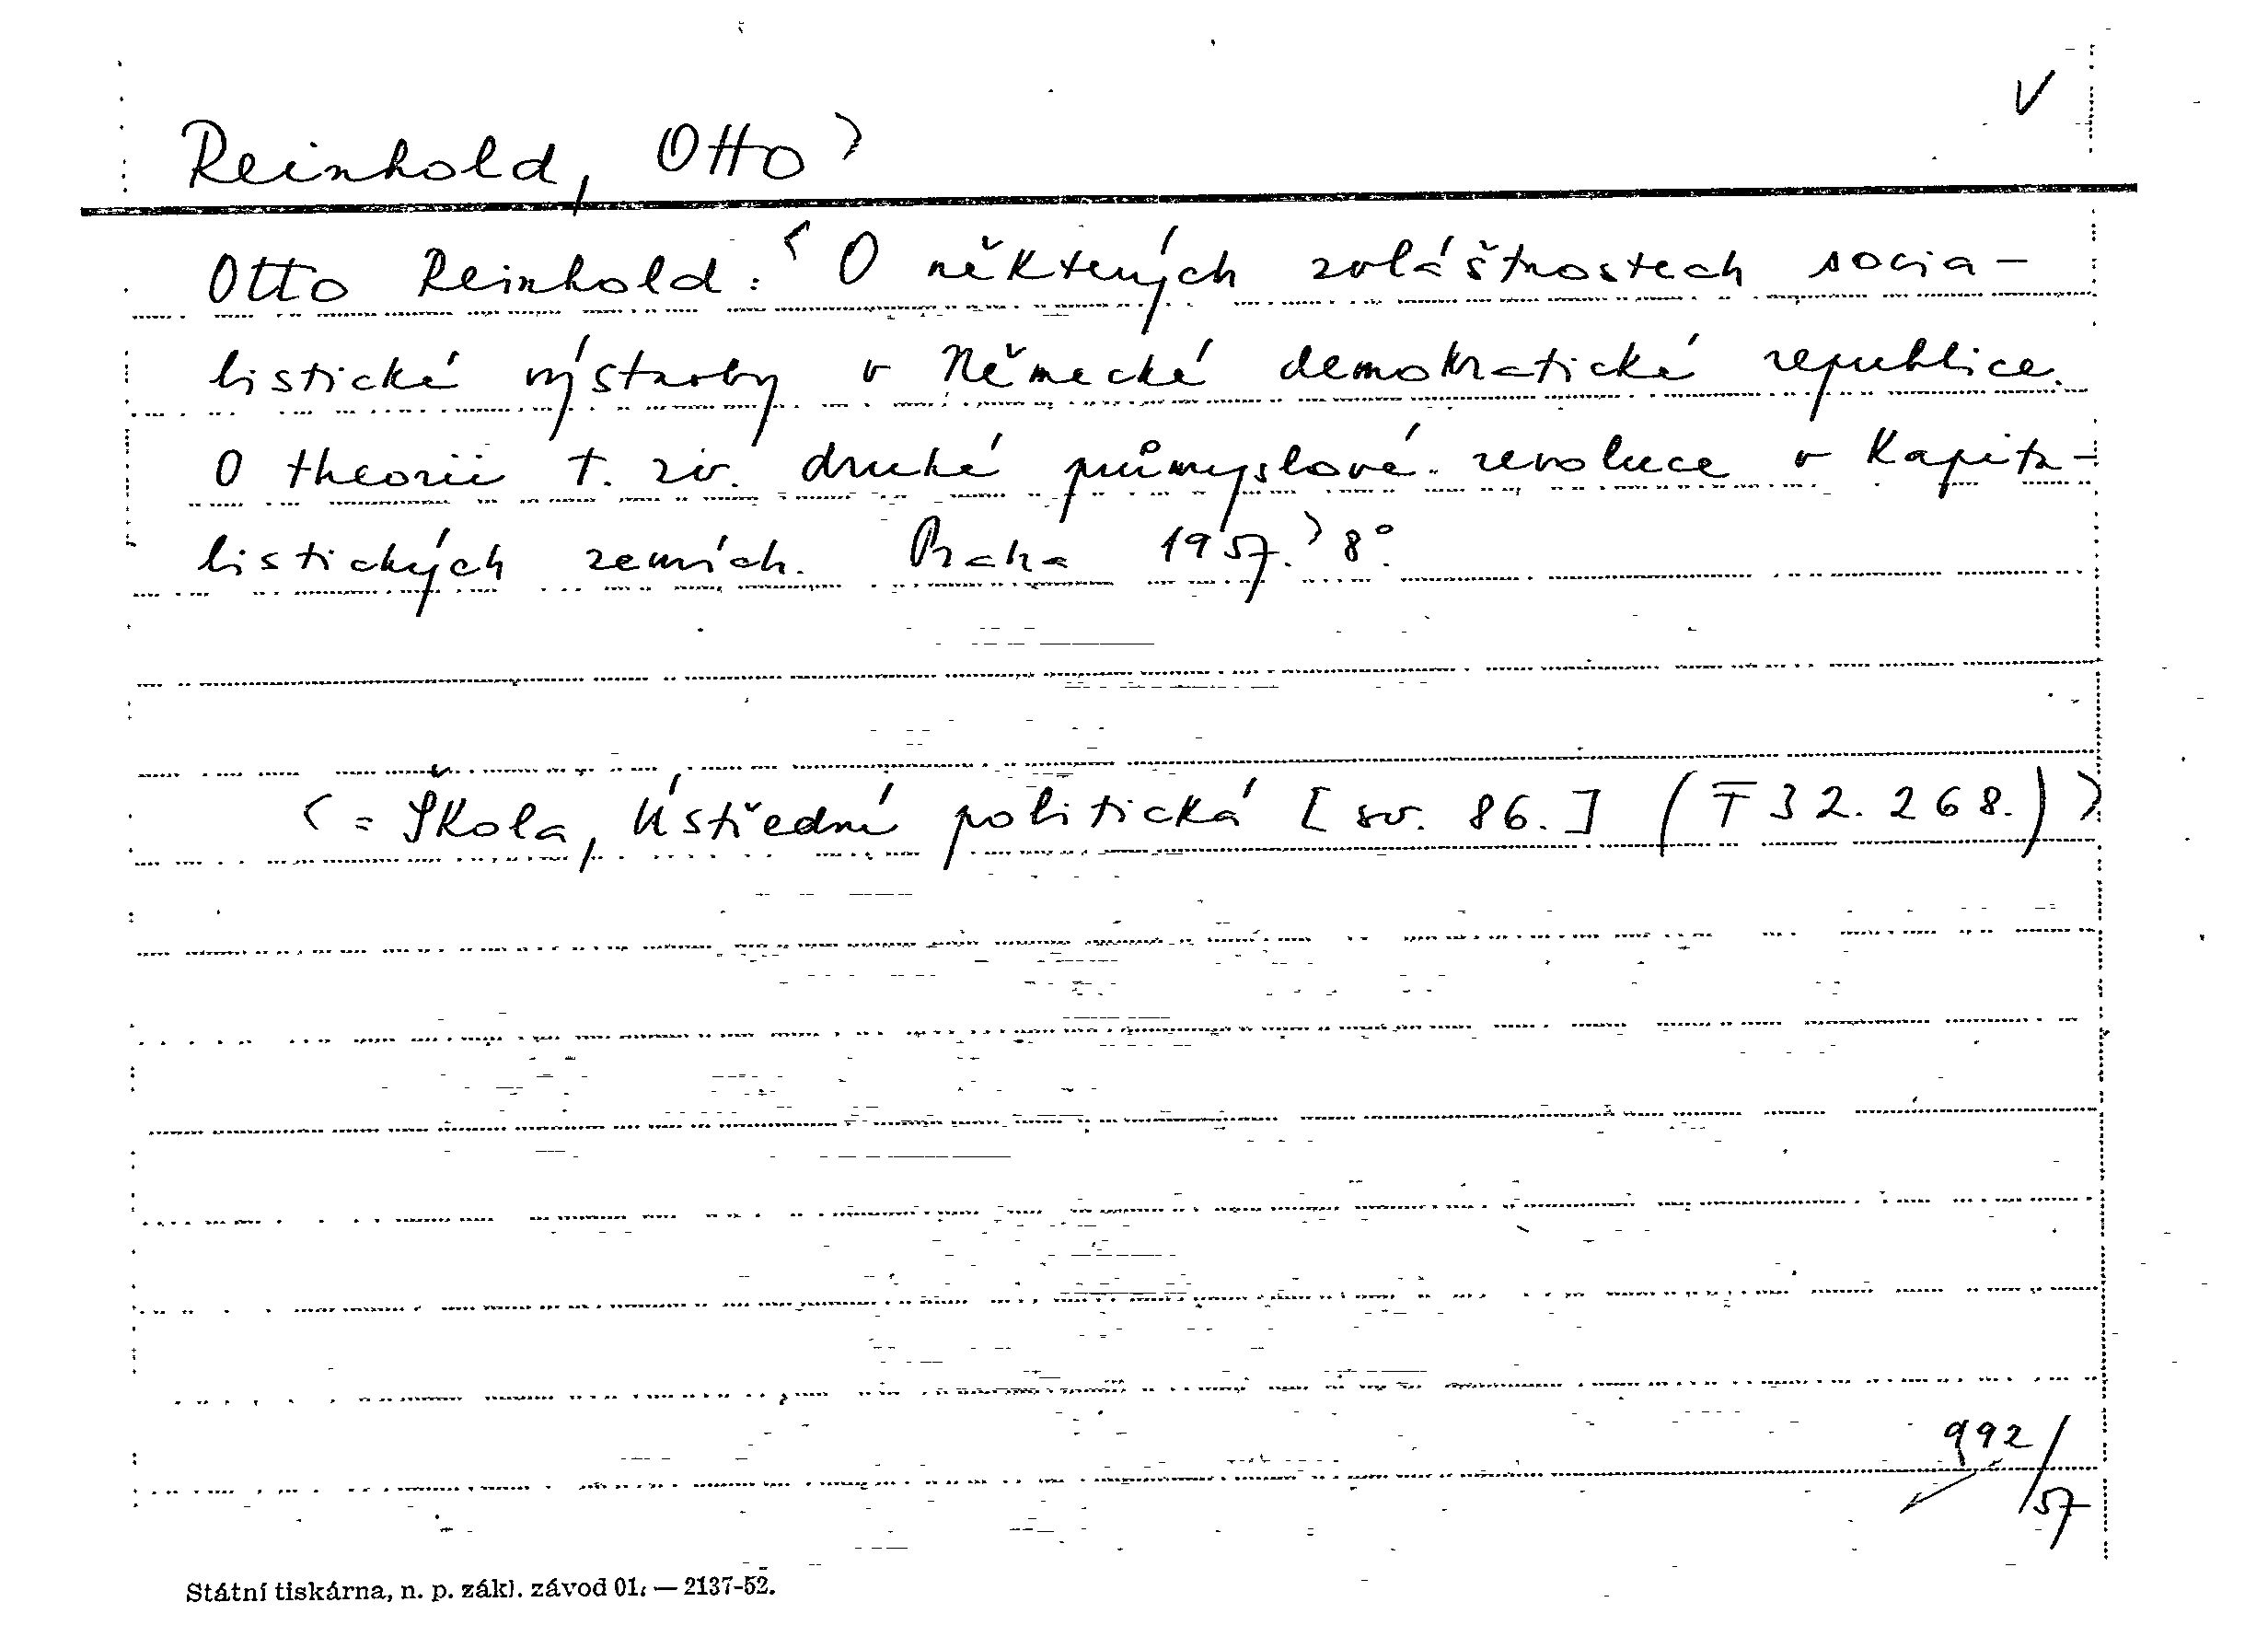 V
Reinhold, Otto>
Otto Reinhold: <O některých zvláštnostech socia-
listické výstavby v Německé demokratické republice.
O theorii t. zv. druhé průmyslové revoluce v kapita-
listických zemích. Praha 1957.> 8°.
<= Škola, Ústřední politická [sv. 86.] (T 32.268.)>
992/57
Státní tiskárna, n. p. zákl. závod 01. — 2137-52.